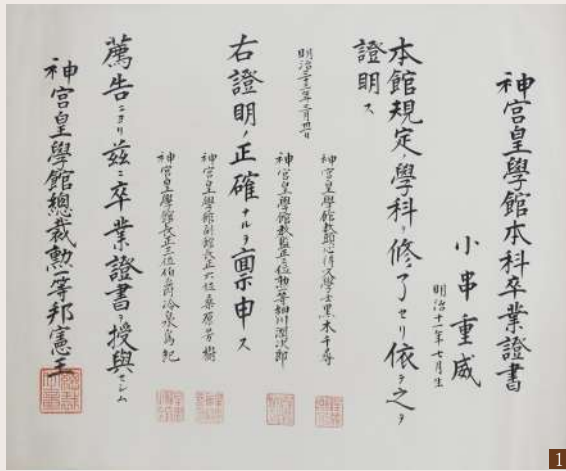 神宮皇學館本科卒業證書
小串重威
明治十一年七月生
本館規定ノ學科ヲ修了セリ依テ之ヲ
證明ス
明治三十三年三月卅一日
神宮皇學館教頭心得文學士黒木千尋
神宮皇學館教監正三位勲一等細川潤次郎
右證明ノ正確ナルヲ稟申ス
神宮皇學館副館長正六位桑原芳樹
神宮皇學館長正三位伯爵冷泉為紀
薦告ニヨリ茲ニ卒業證書ヲ授與セシム
神宮皇學館總裁勲一等邦憲王
1